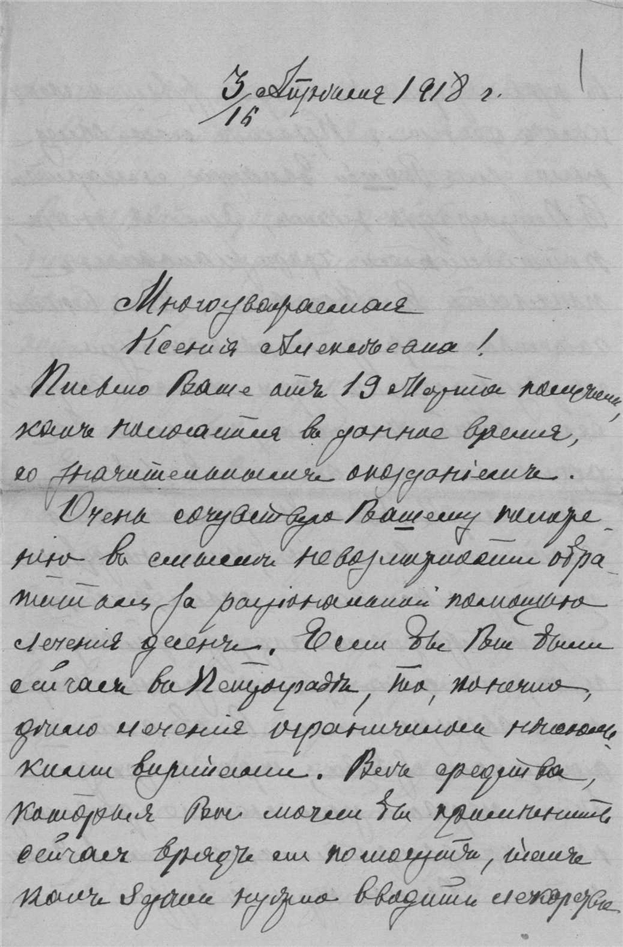 3/16 Апрѣля 1918 г.
Многоуважаемая
Ксенія Алексѣевна!
Письмо Ваше отъ 19 Марта получилъ,
какъ полагается въ данное время,
со значительнымъ опозданіемъ.
Очень сочувствую Вашему положе-
нію въ смыслѣ невозможности обра-
титься за раціональной помощью
леченія десенъ. Если бы Вы были
сейчасъ въ Петроградѣ, то, конечно,
дѣло леченія ограничилось нѣсколь-
кими визитами. Весь средства,
которыя Вы могли бы примѣнить
сейчасъ врядъ ли помогутъ, такъ
какъ нужно вводить лекарства